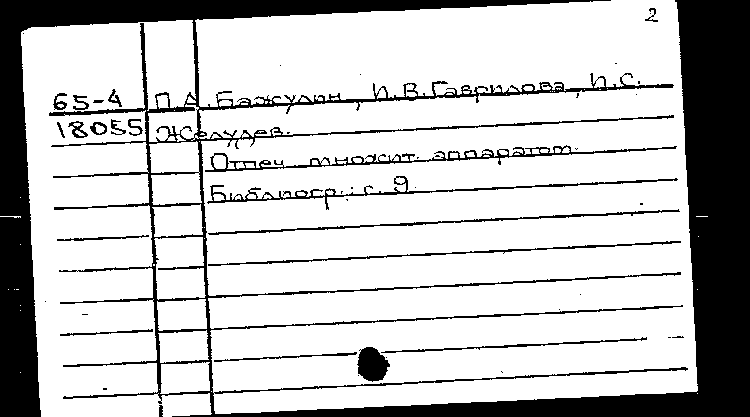 2
65-4 П.А. Бажулин, И.В. Гаврилова, И.С.
18055 Желудев.
Отпеч. множит. аппаратом.
Библиогр.: с. 9.